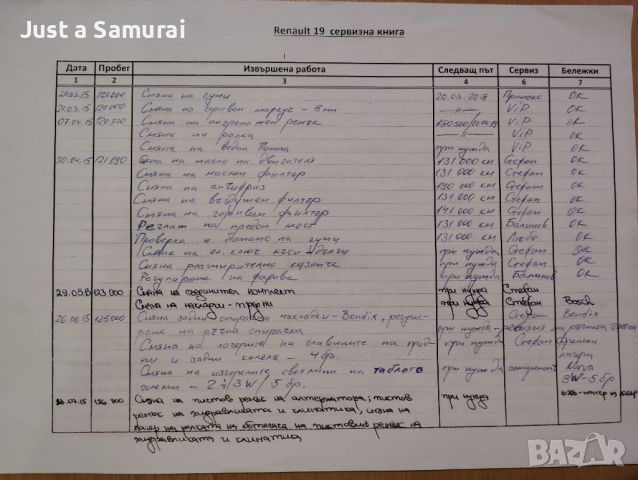 Just a Samurai
Renault 19 сервизна книга
Дата Пробег Извършена работа Следващ път Сервиз Бележки
1 2 3 4 6 7
Смяна на гуми 20.03.2018 ОК
21.03.15 120 000 Смяна на горивен маркуч - 8мм —"— ViP ОК
07.04.15 120 500 Смяна на ангренажен ремък ViP ОК
Смяна на ролка —"— ViP ОК
Смяна на водна Помпа при нужда ViP ОК
30.04.15 121 190 Смяна на масло на двигателя 131 000 км Стефан ОК
Смяна на маслен филтер 131 000 км Стефан ОК
Смяна на антифриз 190 000 км Стефан ОК
Смяна на въздушен филтер 131 000 км Стефан ОК
Смяна на горивен филтер 141 000 км Стефан ОК
Реглаж на преден мост 131 000 км Балинов ОК
Проверка и баланс на гуми 131 000 км Любо ОК
Смяна на ел. ключ къси / дълги при нужда Стефан ОК
Смяна разширително казанче при нужда Стефан ОК
Регулиране на фарове при нужда Балинов ОК
123 000 Смяна на съединител комплект при нужда Стефан
Смяна на накладки - предни при нужда Стефан Bosch
26.06.15 125 000 Смяна задни спирачни накладки - Bendix, регули-
ране на ръчна спирачка при нужда - Стефан Bendix
Смяна на лагерите на главините на пред-
ни и задни колела - 4 бр. при нужда Стефан лагери
Смяна на изгорелите светлини на таблото
3W / 5 бр. при нужда Nova
3W-5бр
126 300 Смяна на пистов ремък на алтернатора; пистов при нужда
ремък на хидравликата и климатика; смяна на
лагер на ролката на обтегача на пистовия ремък на
хидравликата и климатика
BAZAR